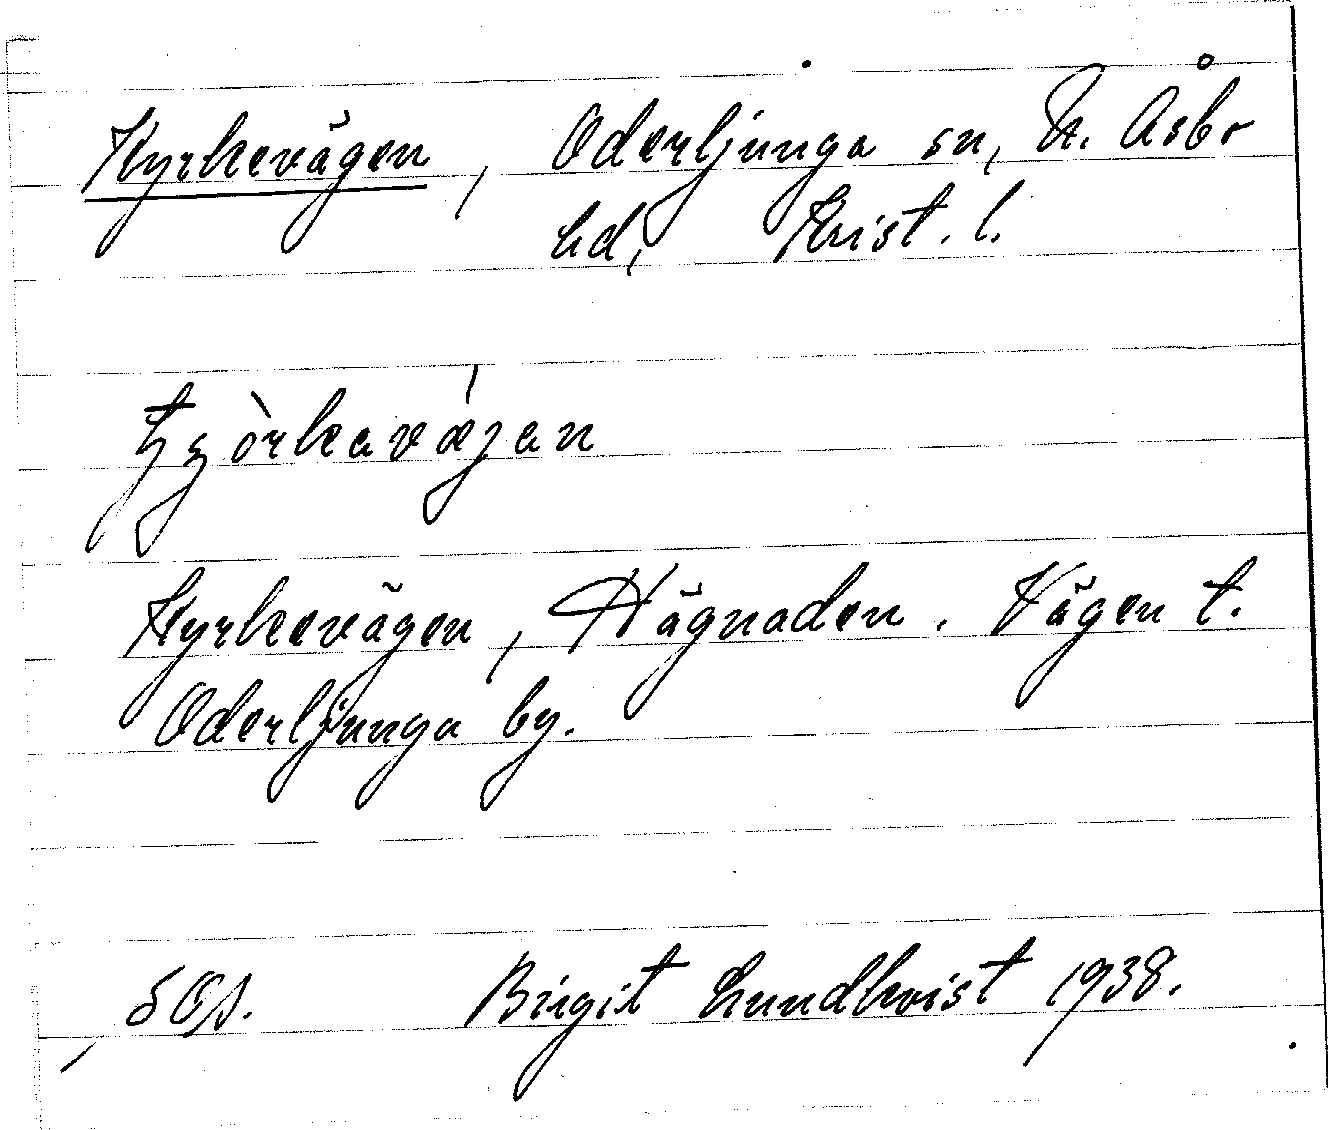 Kyrkevägen, Oderljunga sn, N. Åsbo
hd, Krist. l.
Kyrkevägen, Hägnaden. Vägen t.
Oderljunga by.
Birgit Lundkvist 1938.